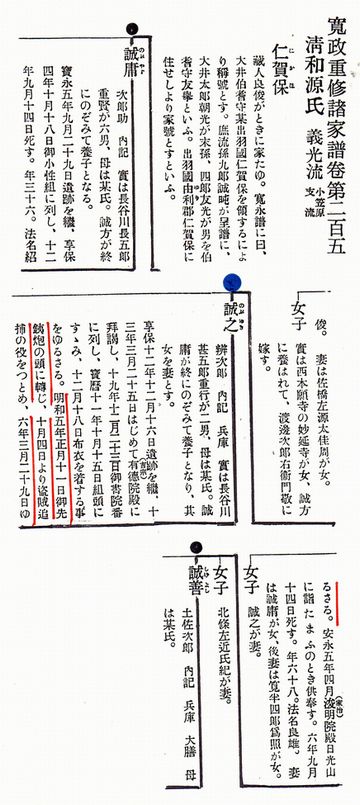 寛政重修諸家譜卷第二百五
清和源氏 義光流 小笠原支流
仁賀保
にかほ
藏人良俊がときに家たゆ。寛永譜に曰、
大井伯耆守某出羽國仁賀保を領するによ
り稱號とす。庶流孫九郎誠昹が呈譜に、
大井太郎朝光が末孫、四郎友光が男を伯
耆守友擧といふ。出羽國由利郡仁賀保に
住せしより家號とすといふ。
誠庸
のぶつね
次郎助 內記 實は長谷川長五郎
重賢が六男、母は某氏。誠方が終
にのぞみて養子となる。
寶永五年九月二十九日遺跡を繼、享保
四年十月十八日御小性組に列し、十二
年九月十四日死す。年三十六。法名紹
俊。 妻は佐橋左源太佳周が女。
女子
實は西本願寺の妙延寺が女、誠方
に養はれて、渡邊次郎右衞門敬に
嫁す。
誠之
のぶゆき
辨次郎 內記 兵庫 實は長谷川
甚五郎重行が二男、母は某氏。誠
庸が終にのぞみて養子となり、其
女を妻とす。
享保十二年十二月十六日遺跡を繼、十
三年三月二十五日はじめて有德院殿に
(吉宗)
拜謁し、十九年十二月二十三日御書院番
に列し、寶曆十一年十月十五日組頭に
すゝみ、十二月十八日布衣を着する事
をゆるさる。明和五年正月十一日御先
銕炮の頭に轉じ、十月四日より盜賊追
捕の役をつとめ、六年三月二十九日ゆ
るさる。安永五年四月浚明院殿日光山
(家治)
に詣たまふのとき供奉す。六年九月
十四日死す。年六十八。法名良雄。 妻
は誠庸が女、後妻は筧半四郎爲照が女。
女子
誠之が妻。
女子
北條左近氏紀が妻。
誠善
のぶよし
土佐次郎 內記 兵庫 大膳 母
は某氏。